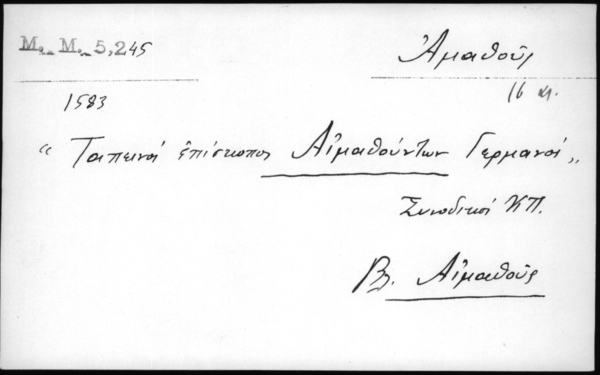 Μ. Μ. 5,245
Ἀμαθοῦς
1583
16 αι.
“ Ταπεινὸς ἐπίσκοπος Αἱμαθούντων Γερμανὸς „
Συνοδικὸς ΚΠ.
Βλ. Αἱμαθοῦς